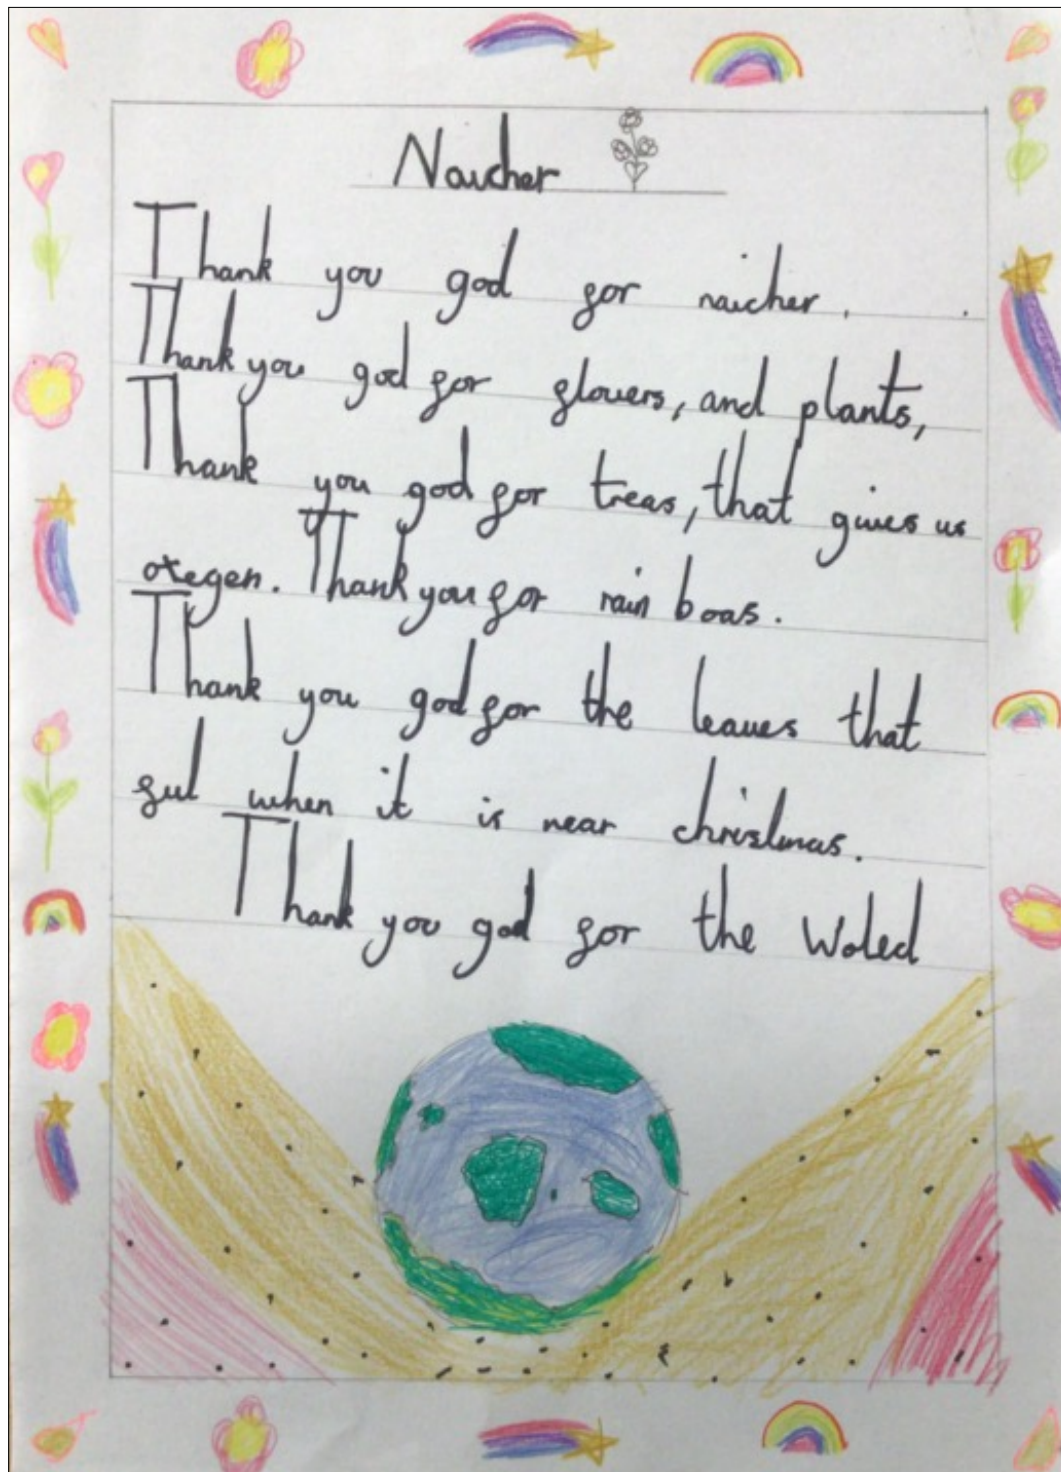 Naicher
Thank you god for naicher.
Thank you god for flouers, and plants,
Thank you god for treas, that gives us
oxegen. Thank you for rain boas.
Thank you god for the leaves that
ful when it is near christmas.
Thank you god for the woled